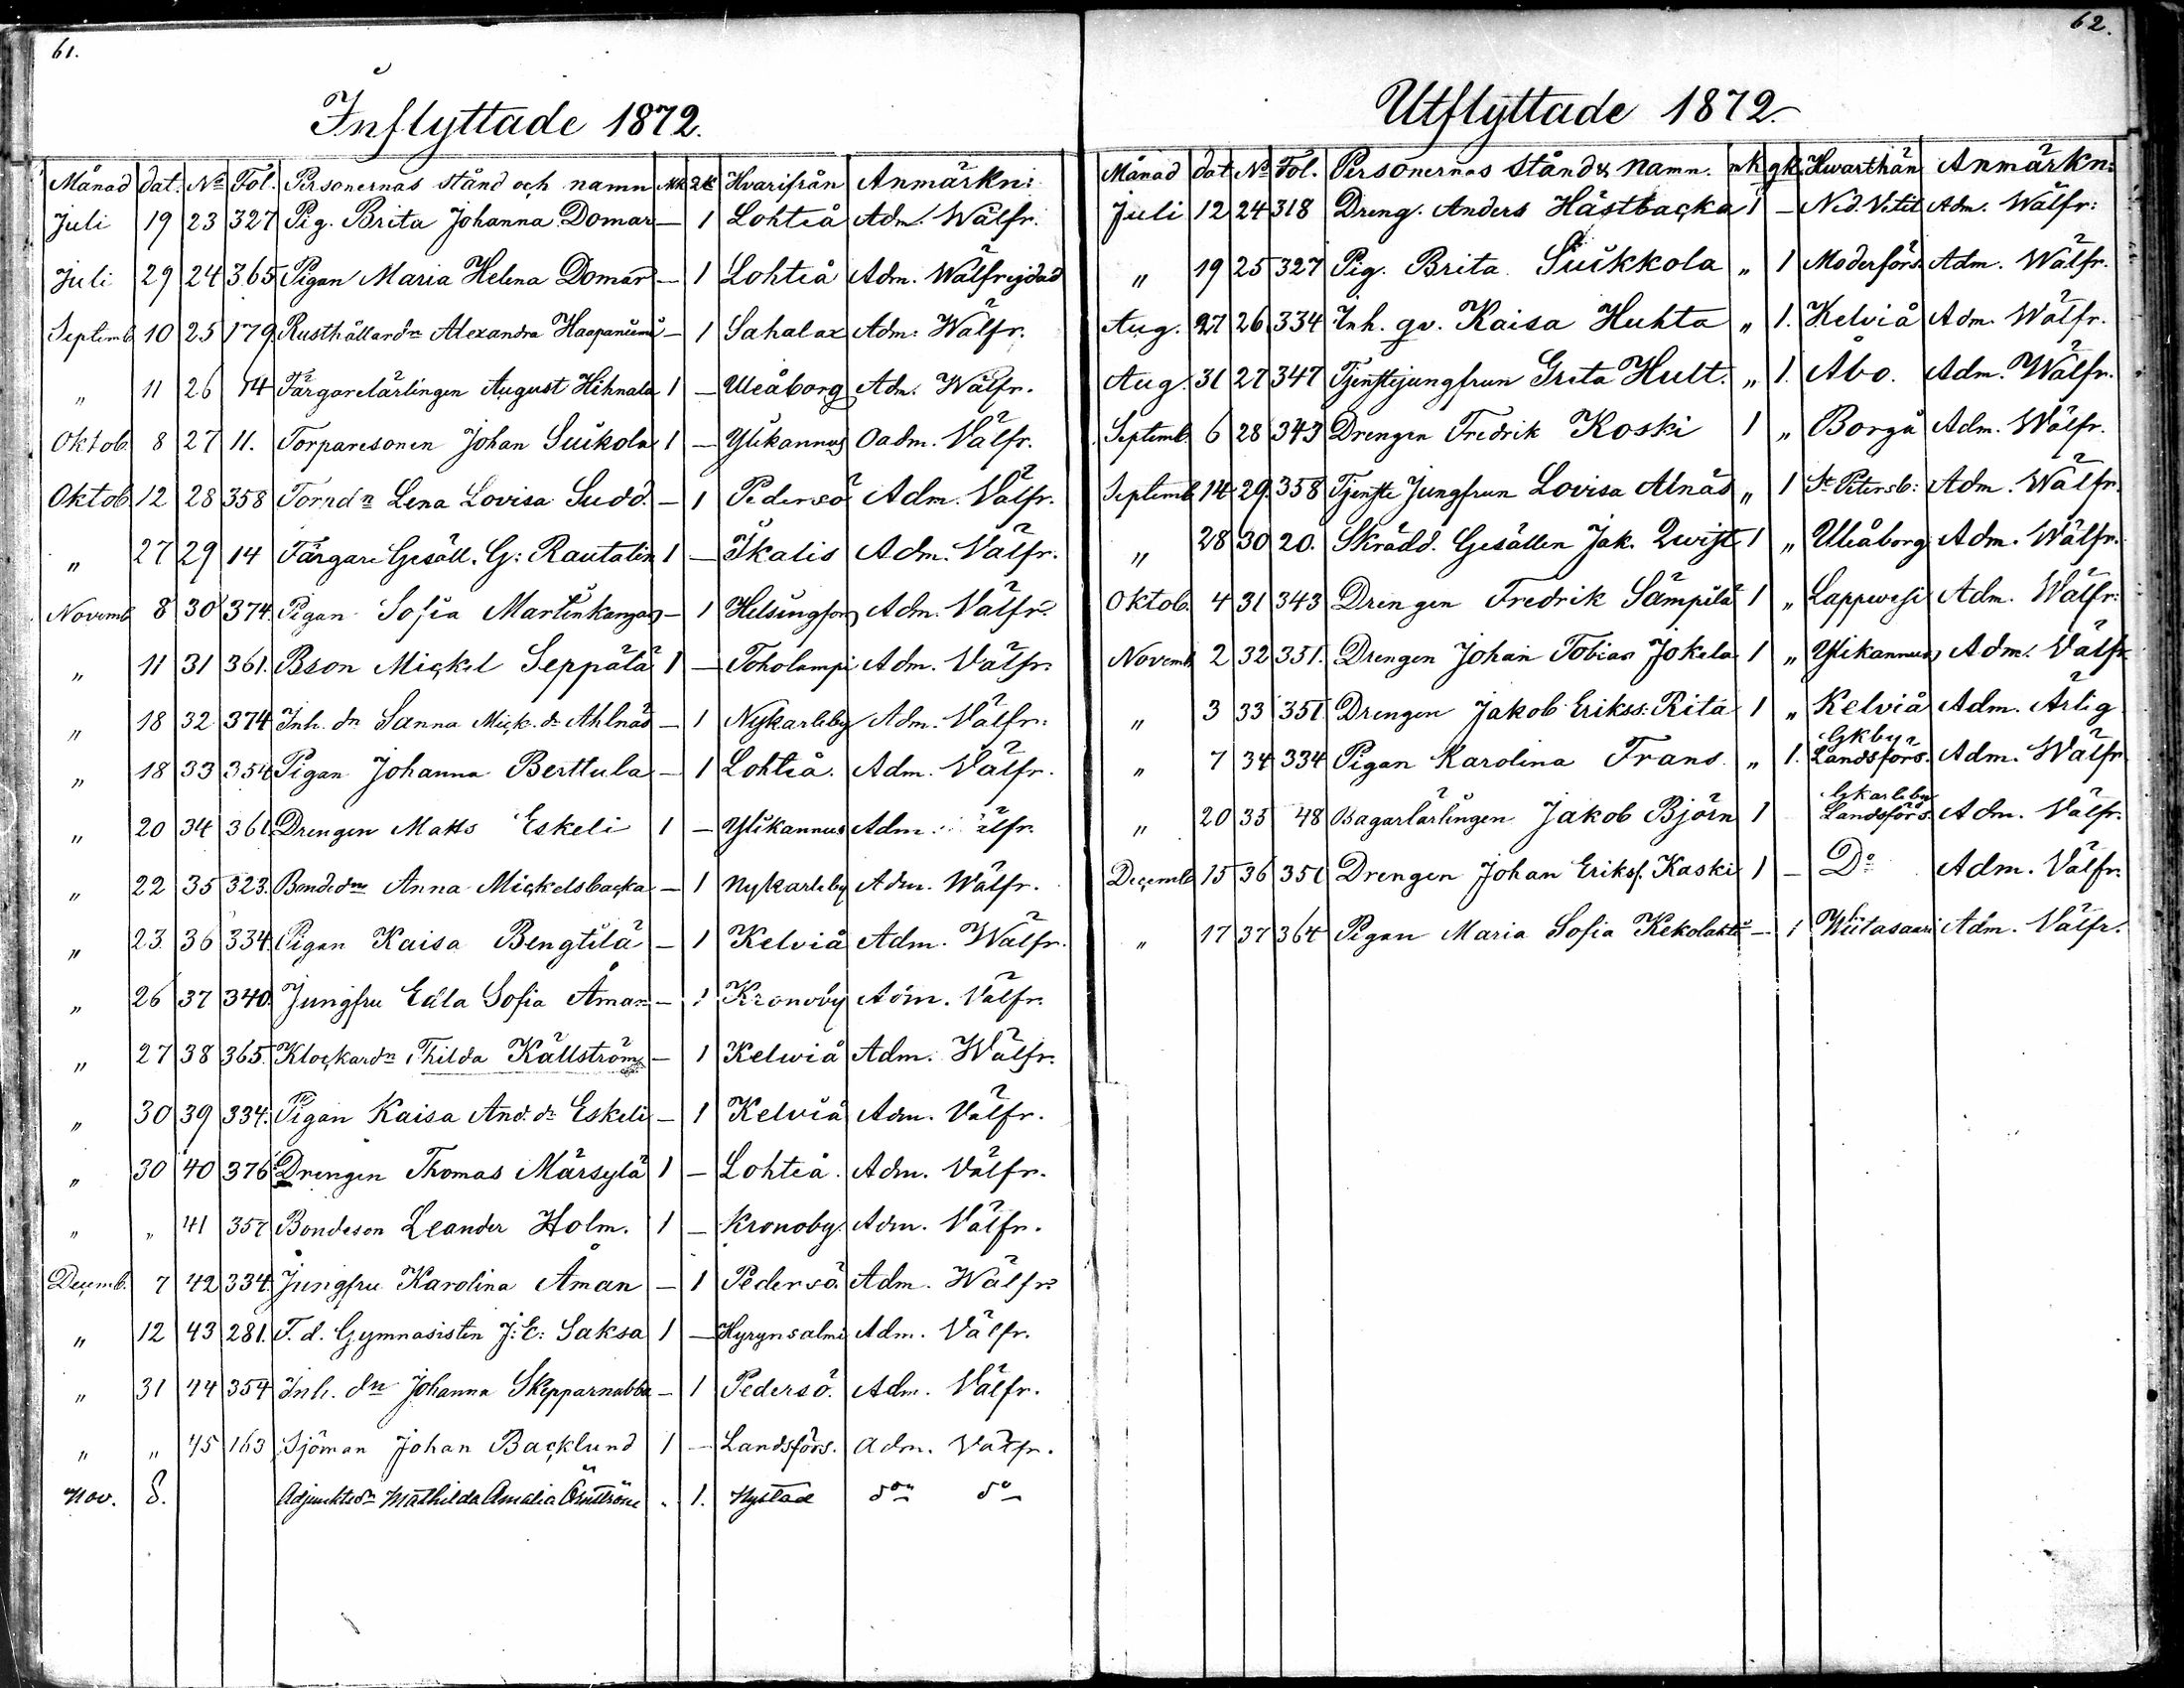 61.
Inflyttade 1872.
Månad dat. No Fol. Personernas stånd och namn Mk 2k Hvarifrån Anmärkn:
Juli 19 23 327 Pig. Brita Johanna Domar — 1 Lohteå Adm. Wälfr.
Juli 29 24 365 Pigan Maria Helena Domar — 1 Lohteå Adm. Wälfrejdad
Septemb 10 25 179 Rusthållardn Alexandra — 1 Sahalax Adm: Wälfr.
" 11 26 14 Färgarelärlingen August Hihnala 1 — Uleåborg Adm. Wälfr.
Oktob. 8 27 11. Torparesonen Johan Suikola 1 — Ylikannus Oadm. Välfr.
Oktob. 12 28 358 Torrdn Lena Lovisa Sudd. — 1 Pedersö Adm. Välfr.
" 27 29 14 Färgare Gesäll. G: Rautalin 1 — Ikalis Adm. Välfr.
Novemb 8 30 374. Pigan Sofia Martinkangas — 1 Helsingfors Adm. Välfr.
" 11 31 361. Bson Mickel Seppälä 1 — Toholampi Adm. Välfr.
" 18 32 374 Inh. dn Sanna Mick. dr Ahlnäs — 1 Nykarleby Adm. Välfr:
" 18 33 354 Pigan Johanna Berttula — 1 Lohteå. Adm. Välfr.
" 20 34 361 Drengen Matts Eskeli 1 — Ylikannus Adm. älfr.
" 22 35 323. Bondedn Anna Mickelsbacka — 1 Nykarleby Adm. Wälfr.
" 23 36 334. Pigan Kaisa Bengtilä — 1 Kelviå Adm. Wälfr.
" 26 37 340. Jungfru Edla Sofia Åman — 1 Kronoby Adm. Välfr.
" 27 38 365. Klockardn Thilda Källström — 1 Kelwiå Adm. Wälfr.
" 30 39 334. Pigan Kaisa And. dr Eskeli — 1 Kelviå Adm. Välfr.
" 30 40 376 Drengen Thomas Märsylä 1 — Lohteå. Adm. Välfr.
" " 41 357 Bondeson Leander Holm. 1 — Kronoby. Adm. Välfr.
Decemb. 7 42 334. Jungfru Karolina Åman — 1 Pedersö. Adm. Wälfr.
" 12 43 281. F. d. Gymnasisten J: E: Saksa 1 — Hyrynsalmi Adm. Välfr.
" 31 44 354 Inh. dn Johanna Skepparnabba — 1 Pedersö. Adm. Välfr.
" " 45 163 Sjöman Johan Backlund 1 — Landsförs. Adm. Välfr.
Nov. 8. Adjunktsdn Mathilda Amalia " 1. Nystad do do
62.
Utflyttade 1872
Månad dat No Fol. Personernas stånd & namn. mk qk. Hwarthän Anmärkn:
Juli 12 24 318 Dreng. Anders Hästbacka 1 — Ned. Vetil Adm. Wälfr:
" 19 25 327 Pig. Brita Suikkola " 1 Moderförs. Adm. Wälfr.
Aug. 27 26 334 Inh. qv. Kaisa Huhta " 1. Kelviå Adm. Wälfr.
Aug. 31 27 347 Tjenstejungfrun Greta Hult. " 1. Åbo. Adm. Wälfr.
Septemb. 6 28 343 Drengen Fredrik Koski 1 " Borgå Adm. Wälfr.
Septemb 14 29. 358 Tjenste Jungfrun Lovisa Alnäs " 1 St Petersb: Adm. Wälfr.
" 28 30 20. Skrädd. Gesällen Jak. Qwist 1 " Uleåborg Adm. Wälfr.
Oktob. 4 31 343 Drengen Fredrik Sämpilä 1 " Lappwesi Adm. Wälfr:
Novemb. 2 32 351. Drengen Johan Tobias Jokela 1 " Ylikannus Adm. Välfr
" 3 33 351 Drengen Jakob Erikss. Rita 1 " Kelviå Adm. Ärlig
" 7 34 334 Pigan Karolina Frans. " 1. Gkby Landsförs. Adm. Wälfr
" 20 35 48 Bagarlärlingen Jakob Björn 1 Gkarleby Landsförs. Adm. Välfr.
Decemb 15 36 351 Drengen Johan Erikss. Kaski 1 — Do Adm. Välfr.
" 17 37 364 Pigan Maria Sofia Kekolahti — 1 Wiitasaari Adm. Välfr.